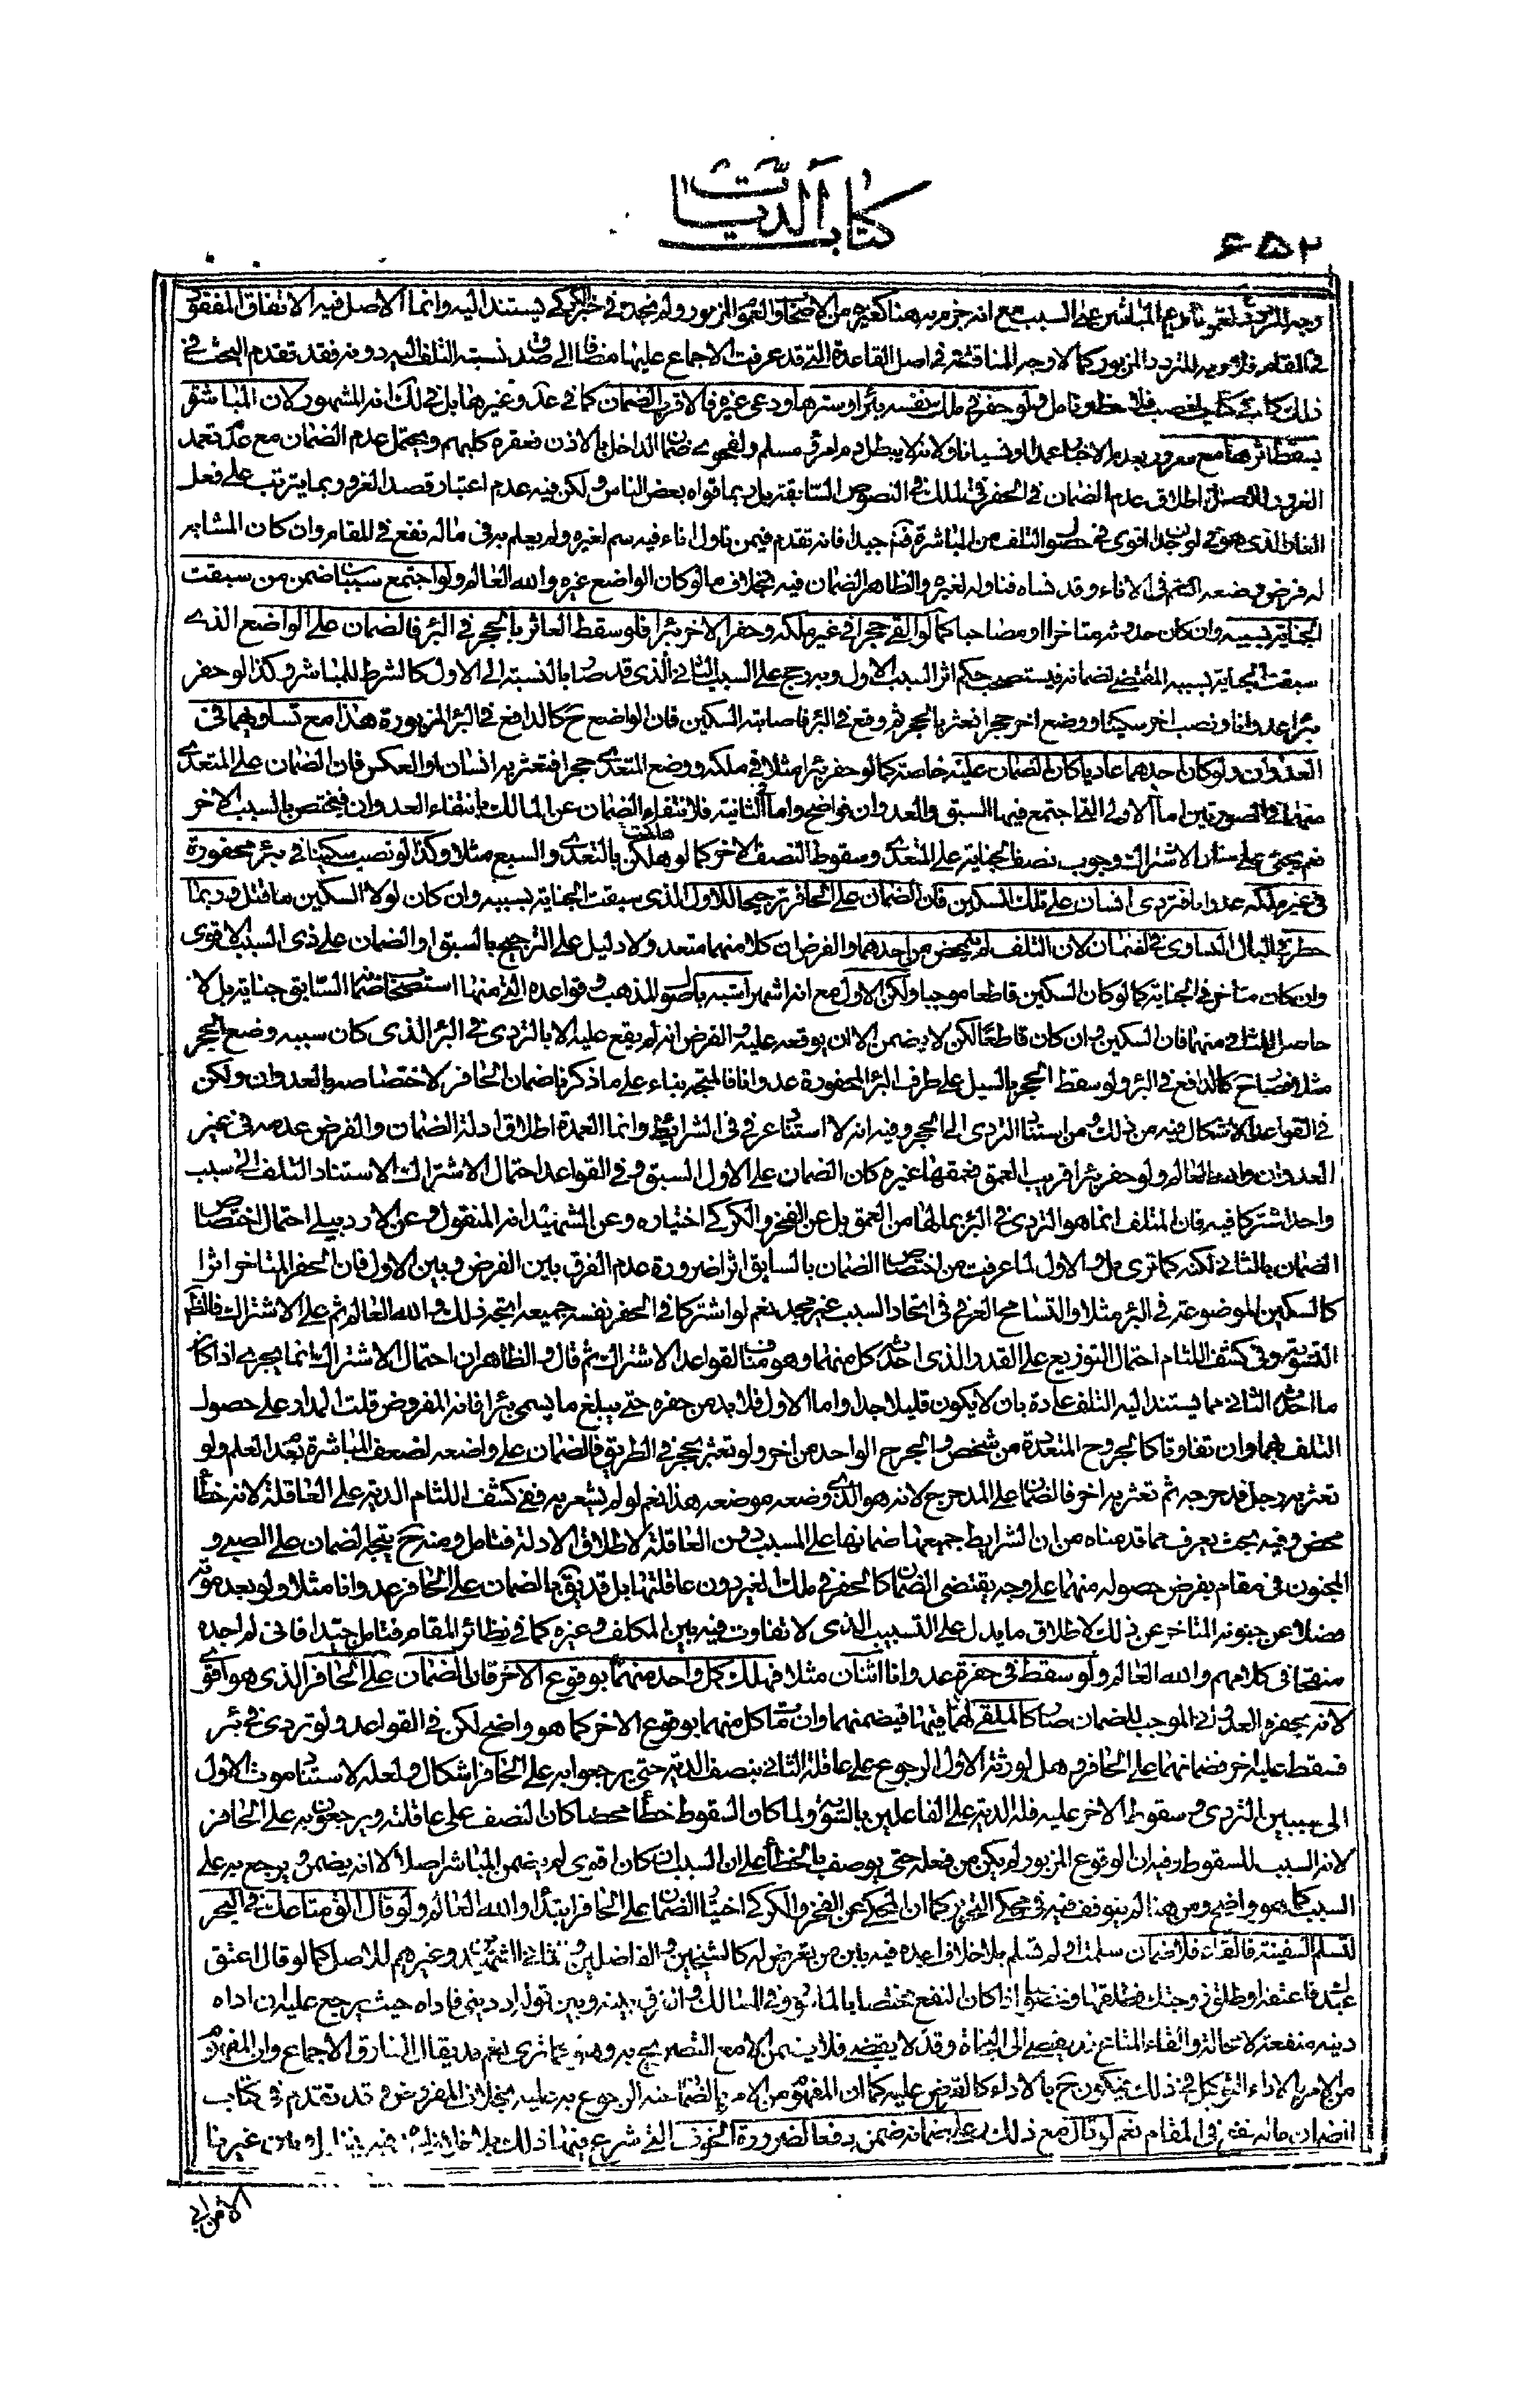 كتاب الديات
٦٥٢
في المقام فلا وجه للتردد المزبور كما لا وجه للمناقشة في اصل القاعدة التي قد عرفت الاجماع عليها مضافا الى صدق نسبة التلف اليه دونه فقد تقدم البحث في
ذلك في كتاب الغصب فلاحظ وتامل ولو حفر في ملك نفسه بئرا وسترها ودعى غيره فالاقرب الضمان كما في عد وغيرها بل في لك انه المشهور لان المباشرة
يسقط اثرها مع الغرور بعدم الاخبار عمدا او نسيانا ولانه لا يبطل دم امرئ مسلم ولفحوى ضمان الداخل بالاذن فعقره كلبهم ويحتمل عدم الضمان مع عدم تعمد
الغرور للاصل واطلاق عدم الضمان في الحفر في الملك في النصوص السابقة بل ربما قواه بعض الناس ولكن فيه عدم اعتبار قصد الغرور بما يترتب على فعل
الغار الذي هو في لوندجدا اقوى في حصول التلف من المباشرة فتامل جيدا فانه تقدم فيمن ناول اناء فيه سم لغيره ولم يعلم به في ماله نفع في المقام وان كان المشابه
له فرض وضعه السم في الاناء وقد نساه فناوله لغيره والظاهر الضمان فيه بخلاف ما لو كان الواضع غيره والله العالم ولو اجتمع سببان ضمن من سبقت
الجناية بسببه وان كان حدوثه متاخرا او مصاحبا كما لو القى حجرا في غير ملكه وحفر الاخر بئرا فلو سقط العاثر بالحجر في البئر فالضمان على الواضع الذي
سبقت الجناية بسببه المقتضي لضمانه فيستصحب حكم اثر السبب الاول وبه رجح على السبب الثاني الذي قد صار بالنسبة الى الاول كالشرط للمباشر وكذا لو حفر
بئرا عدوانا ونصب اخر سكينا ووضع اخر حجرا فعثر بالحجر ثم وقع في البئر فاصابته السكين فان الواضع ح كالدافع في البئر المزبورة هذا مع تساويهما في
العدوان ولو كان احدهما عاديا كان الضمان عليه خاصة كما لو حفر بئرا مثلا في ملكه ووضع المتعدي حجرا فتعثر به انسان او العكس فان الضمان على المتعدي
منهما في الصورتين اما الاولى التي اجتمع فيها السبق والعدوان فواضح واما الثانية فلانتفاء الضمان عن المالك بانتفاء العدوان فيختص بالسبب الاخر
نعم يجئ على سنان الاشتراك وجوب نصف الجناية على المتعدي وسقوط النصف الاخر كما لو هلك بالتعدي والسبع مثلا وكذا لو نصب سكينا في بئر محفورة
في غير ملكه عدوانا فتردى انسان على تلك السكين فان الضمان على الحافر ترجيحا للاول الذي سبقت الجناية بسببه وان كان لولا السكين ما قتل وربما
خطر في البال التساوي في الضمان لان التلف لم يتمحض من احدهما والفرض ان كلا منهما متعد ولا دليل على الترجيح بالسبق او الضمان على ذي السبب الاقوى
وان كان متاخرا في الجناية كما لو كان السكين قاطعا موجبا ولكن الاول مع انه اشهر اشبه باصول المذهب وقواعده التي منها استصحاب ضمان السابق جناية بل لا
حاصل للثاني منهما فان السكين وان كان قاطعا لكن لا يضمن الا ان يوقعه عليه والفرض انه لم يقع عليه الا بالتردي في البئر الذي كان سببه وضع الحجر
مثلا فصار ح كالدافع في البئر ولو سقط الحجر بالسيل على طرف البئر المحفورة عدوانا فالمتجه بناء على ما ذكرنا ضمان الحافر لاختصاصه بالعدوان ولكن
في القواعد الاشكال فيه من ذلك ومن استناد التردي الى الحجر وفيه انه لا استناد عرفي في الشرائط وانما العمدة اطلاق ادلة الضمان والفرض عدمه في غير
العدوان والله العالم ولو حفر بئرا قريب العمق فعمقها غيره كان الضمان على الاول للسبق وفي القواعد احتمال الاشتراك لاستناد التلف الى سبب
واحد اشتركا فيه فان المتلف انما هو التردي في البئر بما لها من العمق بل عن الفخر والكركي اختياره وعن الشهيد انه المنقول وعن الاردبيلي احتمال اختصاص
الضمان بالثاني لكنه كما ترى مثل الاول لما عرفت من اختصاص الضمان بالسابق اثرا ضرورة عدم الفرق بين الفرض وبين الاول فان الحفر المتاخر اثرا
كالسكين الموضوعة في البئر مثلا والتسامح العرفي في اتحاد السبب غير مجد نعم لو اشتركا في الحفر نفسه جميعه اتجه ذلك والله العالم ثم على الاشتراك فالظاهر
التسوية وفي كشف اللثام احتمال التوزيع على القدر الذي احدثه كل منهما وهو مناف لقواعد الاشتراك ثم قال والظاهر ان احتمال الاشتراك انما يجري اذا كان
ما احدثه الثاني مما يستند اليه التلف عادة بان لا يكون قليلا جدا واما الاول فلا بد من حفره حتى يبلغ ما يسمى بئرا فانه المفروض قلت المدار على حصول
التلف بهما وان تفاوتا كالجروح المتعددة من شخص والجرح الواحد من اخر ولو تعثر بحجر في الطريق فالضمان على واضعه لضعف المباشرة بعدم العلم ولو
تعثر به رجل فدحرجه ثم تعثر به اخر فالضمان على المدحرج لانه هو الذي وضعه موضعه هذا نعم لو لم يشعر به ففي كشف اللثام الدية على العاقلة لانه خطأ
محض وفيه بحث يعرف مما قدمناه من ان الشرايط جميعها ضمانها على المسبب دون العاقلة لاطلاق الادلة فتامل ومنه ح يتجه الضمان على الصبي و
المجنون في مقام يفرض حصوله منهما على وجه يقتضي الضمان كالحفر في ملك الغير دون عاقلتهما بل قد يق بالضمان على الحافر عدوانا مثلا ولو بعد موته
فضلا عن جنونه المتاخر عن ذلك لاطلاق ما يدل على التسبيب الذي لا تفاوت فيه بين المكلف وغيره كما في نظائر المقام فتامل جيدا فاني لم اجده
منقحا في كلامهم والله العالم ولو سقط في حفرة عدوانا اثنان مثلا فهلك كل واحد منهما بوقوع الاخر فالضمان على الحافر الذي هو اقوى
لانه بحفره العدواني الموجب للضمان صار كالملقي لهما فيها فيضمنهما وان مات كل منهما بوقوع الاخر كما هو واضح لكن في القواعد ولو تردى في بئر
فسقط عليه اخر فضمانهما على الحافر وهل لورثة الاول الرجوع على عاقلة الثاني بنصف الدية حتى يرجعوا به على الحافر اشكال ولعله لاستناد موت الاول
الى سببين التردي وسقوط الاخر عليه فله الدية على الفاعلين بالسوية ولما كان السقوط خطأ محضا كان النصف على عاقلته ويرجعون به على الحافر
لانه السبب للسقوط وفيه ان الوقوع المزبور لم يكن من فعله حتى يوصف بالخطأ على ان السبب ان كان اقوى لم يضمن المباشر اصلا لا انه يضمن ويرجع به على
السبب كما هو واضح ومن هنا لم يتوقف فيه في محكي التحرير كما ان المحكي عن الفخر والكركي اختيار الضمان على الحافر ابتداء والله العالم ولو قال الق متاعك في البحر
لتسلم السفينة فالقاه فلا ضمان سلمت او لم تسلم بلا خلاف اجده فيه بين من تعرض له كالشيخين والفاضلين وثاني الشهيدين وغيرهم للاصل كما لو قال اعتق
عبدك فاعتقه او طلق زوجتك فطلقها
دينه منفعة لا محالة والقاء المتاع قد يفضي الى النجاة وقد لا يفضي فلا يضمن الا مع التصريح به
من الامر بالاداء التوكيل في ذلك فيكون ح بالاداء كالقرض عليه كما ان المفهوم من الامر بالضمان عنه الرجوع به عليه بخلاف المفروض وقد تقدم في كتاب
الضمان ماله نفع في المقام نعم لو قال مع ذلك وعلي ضمانه ضمن دفعا لضرورة الخوف